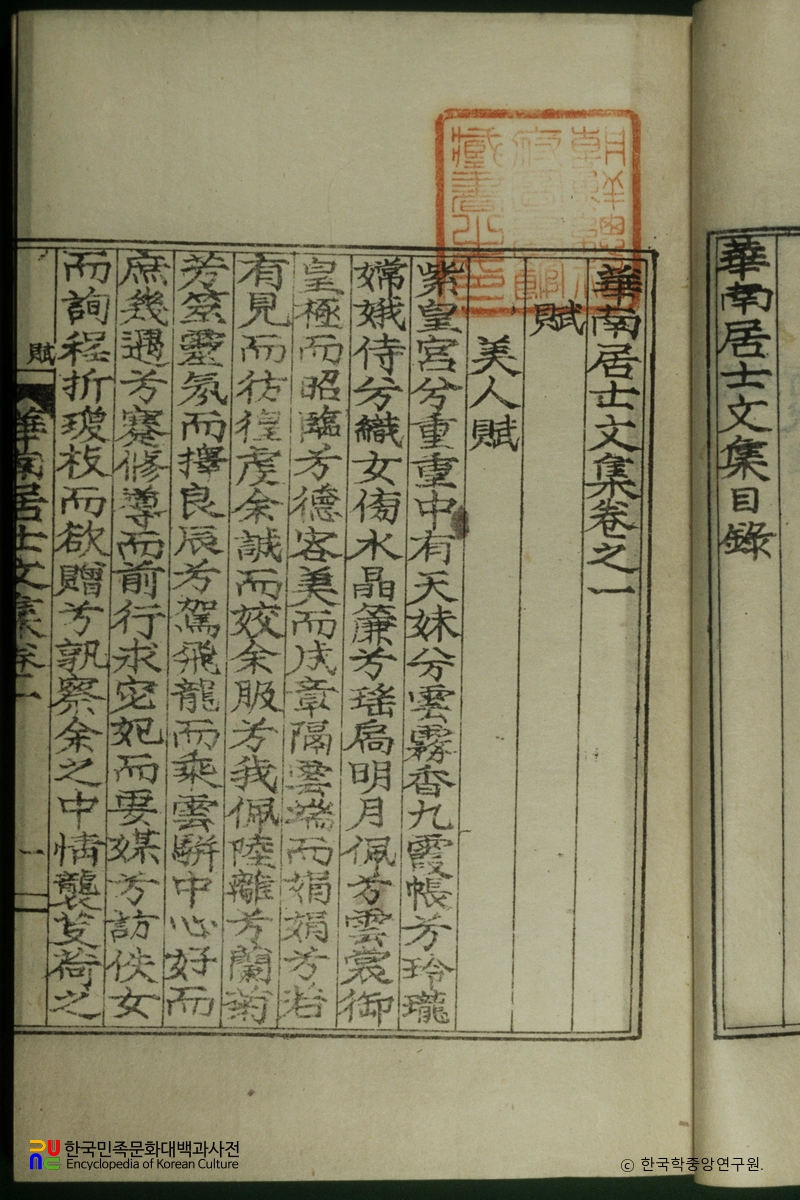 華南居士文集目錄
華南居士文集卷之一
賦
美人賦
紫皇宮兮重重中有天妹兮雲霧香九霞帳兮玲瓏
嫦娥侍兮織女傍水晶簾兮瑤扃明月佩兮雲裳御
皇極而昭臨兮德容美而成章隔雲端而娟娟兮若
有見而彷徨虔余誠而姣余服兮我佩陸離兮蘭菊
芳筮靈氛而擇良辰兮駕飛龍而乘雲騈中心好而
庶幾遇兮蹇修導而前行求宓妃而要媒兮訪佚女
而詢程折瓊枝而欲贈兮孰察余之中情襲芰荷之
賦
華南居士文集卷一
一
한국민족문화대백과사전
Encyclopedia of Korean Culture
© 한국학중앙연구원.